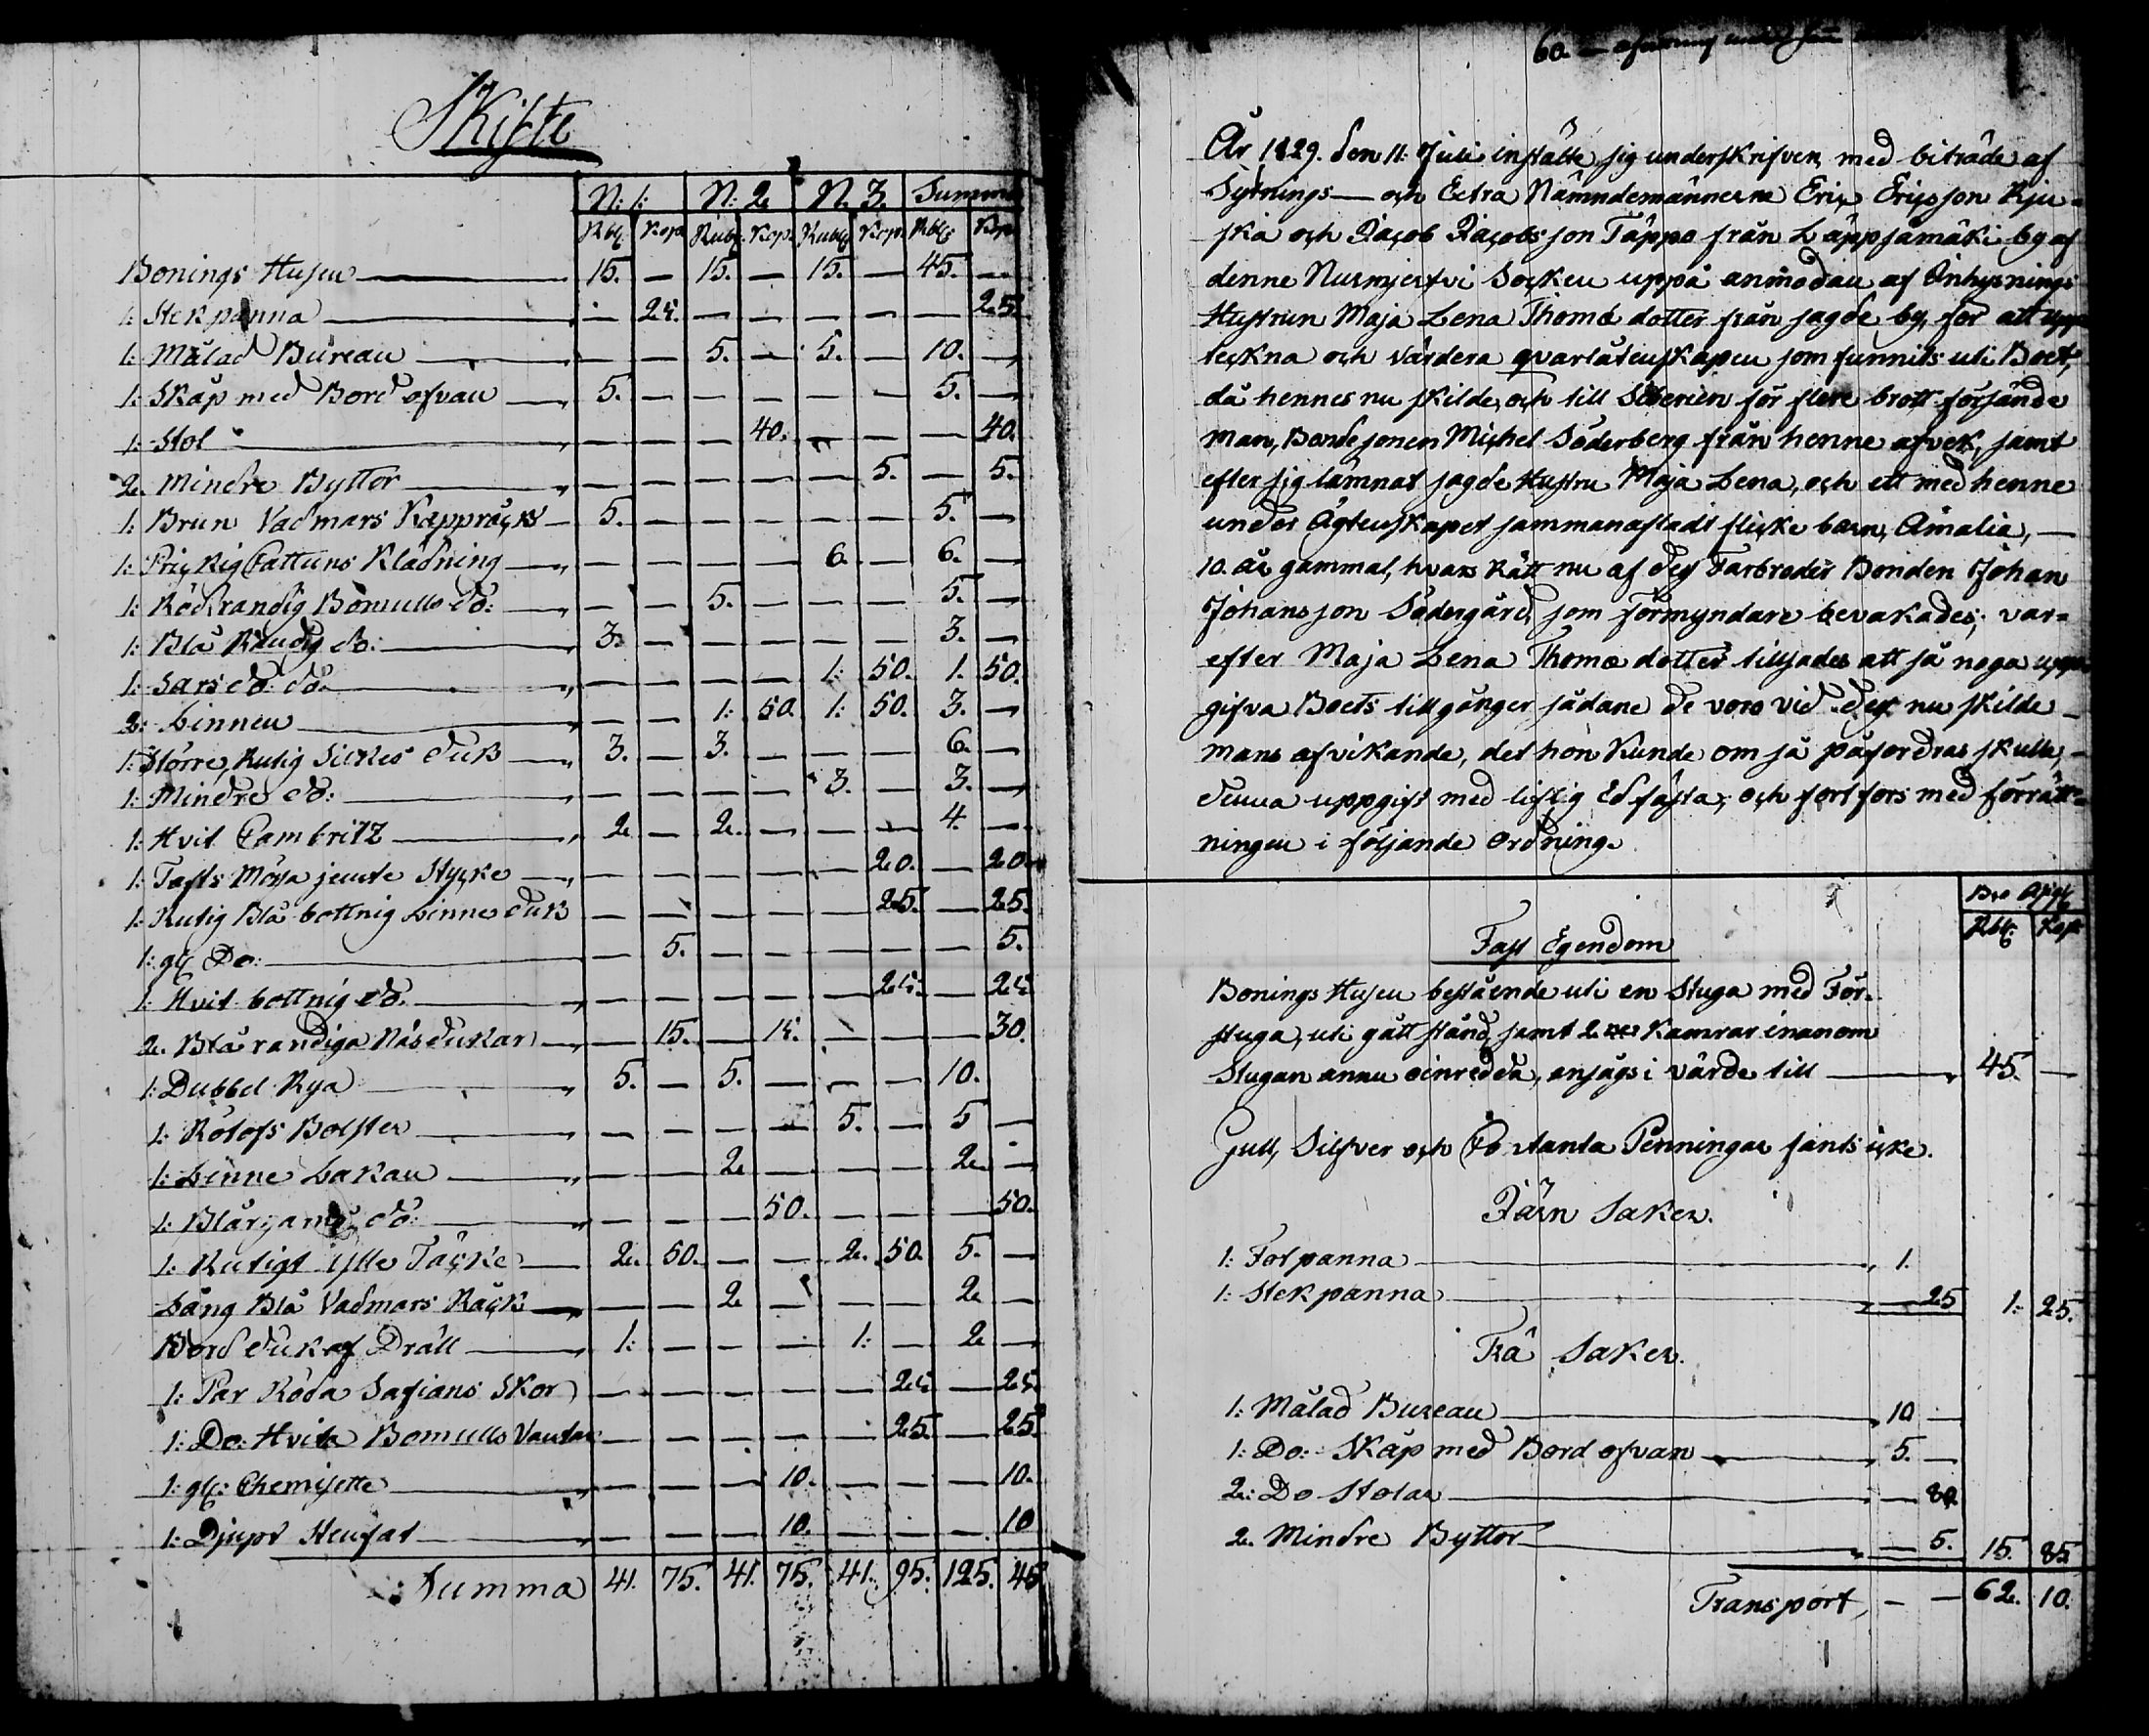 Skifte
N: 1: N: 2 N. 3. Summa
Rbl: Kop Rubl: Kop. Rubl: Kop. Rbls Kop
Bonings Husen — 15. — 15. — 15. — 45. —
1: Stekpanna — — 25. — — — — — 25.
1: Målad Bureau — — — 5. — 5. — 10. —
1: Skåp med Bord ofvan — 5. — — — — — 5. —
1: Stol — — — — 40. — — — 40.
2. Mindre Byttor — — — — — — 5. — 5.
1: Brun Vadmars Kappråck — 5. — — — — — 5. —
1: Prickig Cattuns Klädning — — — — — 6. — 6. —
1: Rödrandig Bomulls do: — — — 5. — — — 5. —
1: Blå Randig do: — 3. — — — — — 3. —
1: Sars do: do: — — — — — 1: 50. 1. 50.
2: Linnen — — — 1: 50. 1: 50. 3. —
1: Större, Rutig Silkes duk — 3. — 3. — — — 6. —
1: Mindre do: — — — — — 3. — 3. —
1: Hvit Cambritz — 2 — 2. — — — 4. —
1: Tafts Mössa jemte Stycke — — — — — — 20. — 20.
1: Rutig Blå bottnig Linne duk — — — — — 25. — 25.
1: gl: Do: — — 5. — — — — — 5.
1: Hvit bottnig do. — — — — — — 25. — 25
2. Blå randiga Näsdukar — — 15. — 15. — — — 30.
1: Dubbel Rya — 5. — 5. — — — 10.
1: Rölofs Bolster — — — — — 5. — 5 —
1: Linne Lakan — — — 2 — — — 2 —
1: Blårgarns do: — — — — 50. — — — 50.
1: Rutigt ylle Täcke — 2. 50. — — 2. 50. 5. —
Lång Blå Vadmars Råck — — — 2 — — — 2 —
Bord duk af Dräll — 1: — — — 1: — 2 —
1: Par Röda Safians Skor — — — — — 25. — 25.
1: Do: Hvita Bomulls Vantar — — — — — 25. — 25.
1: gl: Chemisette — — — — 10. — — — 10.
1: Djupt Stenfat — — — — 10. — — — 10
Summa 41. 75. 41. 75. 41. 95. 125. 45
60.
År 1829. den 11. Juli instälte sig underskrifven, med biträde af
Sytnings— och Extra Nämndemännerna Eric Ericsson Kju-
ska och Jacob Jacobsson Täppo från Lappsamäki by af
denne Nurmjerfvi Socken uppå anmodan af Inhysnings
Hustrun Maja Lena Thomæ dotter från sagde by, för att upp
teckna och värdera qvarlåtenskapen som funnits uti Boet,
då hennes nu skilde, och till Siberien för flere brott försände
man, Bondesonen Michel Söderberg från henne afvek, samt
efter sig lämnat sagde Hustru Maja Lena, och ett med henne
under Ägtenskapet sammanafladt flicke barn, Amalia, —
10. år gammal, hvars Rätt nu af dess Farbroder Bonden Johan
Johansson Södergård, som Förmyndare bevakades; var-
efter Maja Lena Thomæ dotter tillsades att så noga upp
gifva Boets tillgånger sådane de voro vid dess nu skilde
mans afvikande, det hon Kunde om så påfordras skulle, —
denna uppgift med liflig Ed fästa; och fortfors med förrätt-
ningen i följande Ordning.
Bco Ass:
Rbl: Kop
Fast Egendom
Bonings Husen bestående uti en Stuga med För-
stuga, uti gått stånd, samt 2 Kamrar inanom
Stugan annu oinredda, ansågs i värde till — 45. —
Gull, Silfver och Contanta Penningar fants icke.
Järn Saker.
1: Fotpanna — 1.
1: Stekpanna — — 25 1: 25.
Trä Saker.
1: Målad Bureau — 10 —
1: Do: Skåp med Bord ofvan — 5. —
2: Do Stolar — — 80
2. Mindre Byttor — — 5. 15. 85.
Transport, — — 62. 10.